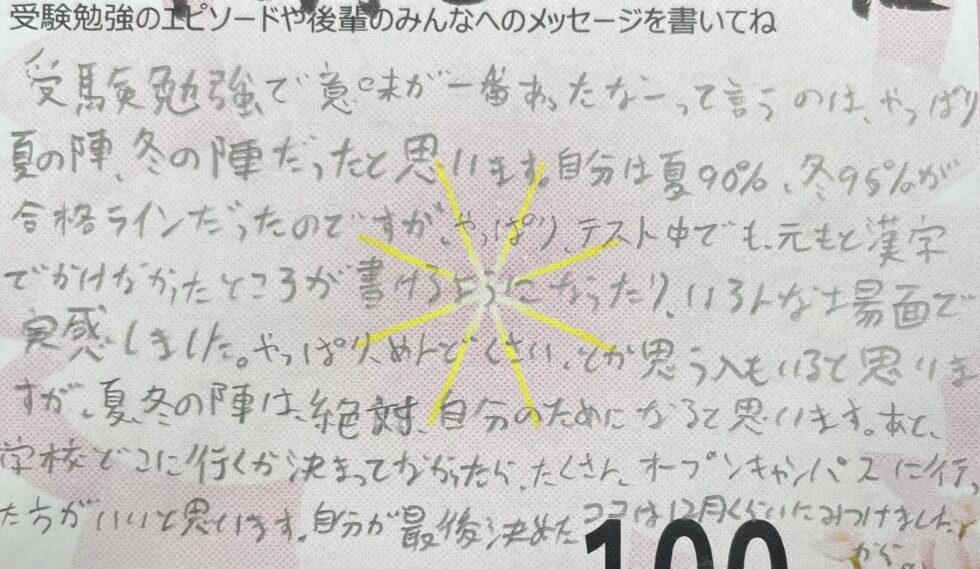 受験勉強のエピソードや後輩のみんなへのメッセージを書いてね
受験勉強で意味が一番あったなーって言うのは、やっぱり
夏の陣、冬の陣だったと思います。自分は夏90%、冬95%が
合格ラインだったのですが、やっぱり、テスト中でも、元もと漢字
でかけなかったところが書けるようになったり、いろんな場面で
実感しました。やっぱりめんどくさい、とか思う人もいると思いま
すが、夏、冬の陣は、絶対、自分のためになると思います。あと、
学校どこに行くか決まってなかったら、たくさん、オープンキャンパスに行っ
た方がいいと思います。自分が最後決めたココは12月くらいにみつけました
から。
100